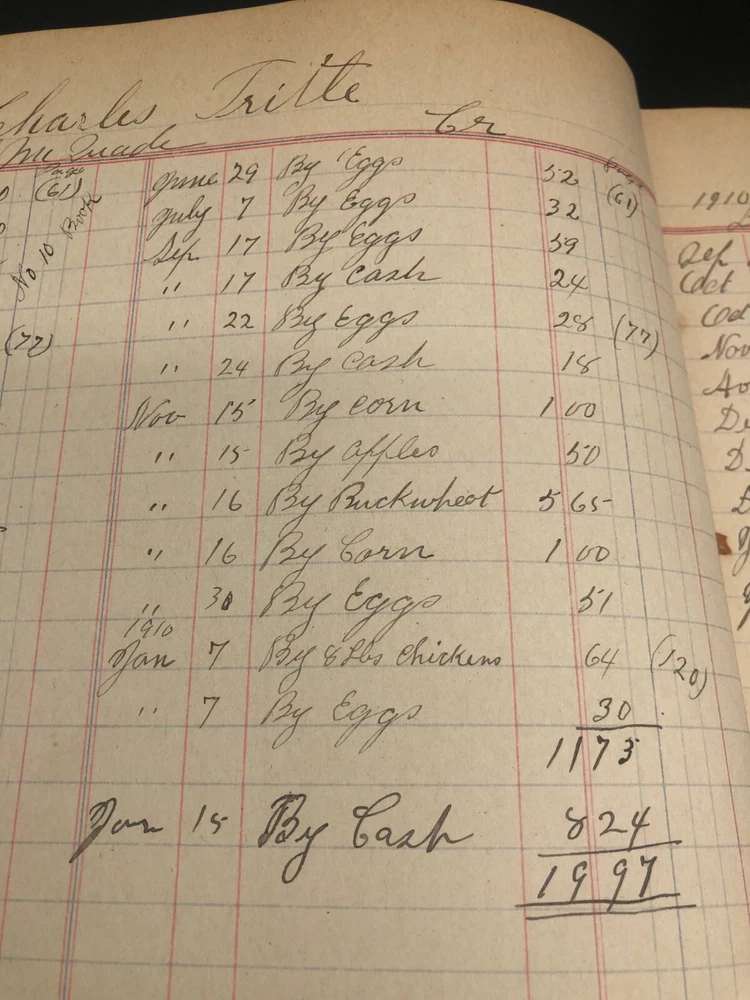 Charles Tritle
Cr
Mc Quade
Page (61)
No 10 Book
(77)
June 29 By Eggs 52 Page (61)
July 7 By Eggs 32
Sep 17 By Eggs 59
" 17 By Cash 24
" 22 By Eggs 28 (77)
" 24 By Cash 18
Nov 15 By Corn 1 00
" 15 By Apples 50
" 16 By Buckwheat 5 65
" 16 By Corn 1 00
" 30 By Eggs 51
1910
Jan 7 By 8 Lbs Chickens 64 (120)
" 7 By Eggs 30
11 73
Jan 15 By Cash 8 24
19 97
1910
Sep
Oct
Oct
Nov